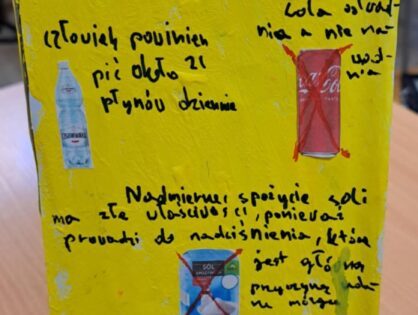 człowiek powinien
pić około 2l
płynów dziennie
cola odwad-
nia a nie na-
wod-
nia
Coca-Cola
Nadmierne spożycie soli
ma złe właściwości, ponieważ
prowadzi do nadciśnienia, które
jest główną
przyczyną
SÓL